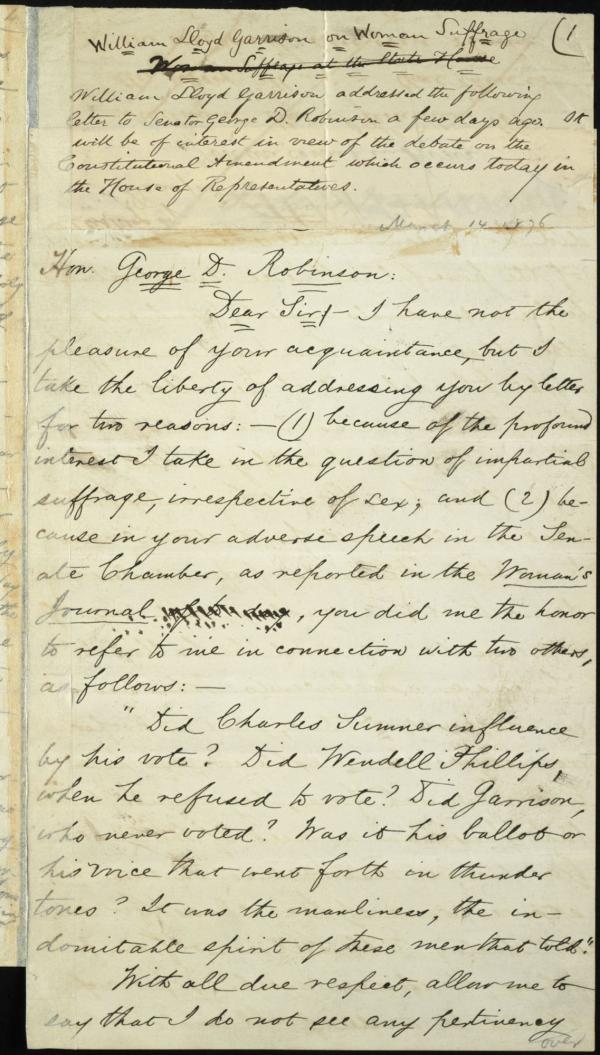 William Lloyd Garrison on Woman Suffrage (1
Woman Suffrage at the State House
William Lloyd Garrison addressed the following
letter to Senator George D. Robinson a few days ago. It
will be of interest in view of the debate on the
Constitutional Amendment which occurs today in
the House of Representatives.
March 14 1876
Hon. George D. Robinson:
Dear Sir:— I have not the
pleasure of your acquaintance, but I
take the liberty of addressing you by letter
for two reasons: — (1) because of the profound
interest I take in the question of impartial
suffrage, irrespective of sex; and (2) be-
cause in your adverse speech in the Sen-
ate Chamber, as reported in the Woman's
Journal, you did me the honor
to refer to me in connection with two others,
as follows: —
"Did Charles Sumner influence
by his vote? Did Wendell Phillips,
when he refused to vote? Did Garrison,
who never voted? Was it his ballot or
his voice that went forth in thunder
tones? It was the manliness, the in-
domitable spirit of these men that told."
With all due respect, allow me to
say that I do not see any pertinency
over